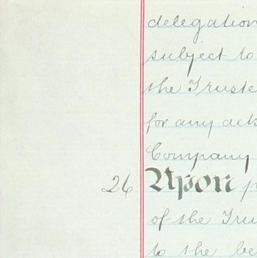 delegation
subject to
the Truste
for any ack
Company
26 Upon p
of the Tru
to the be